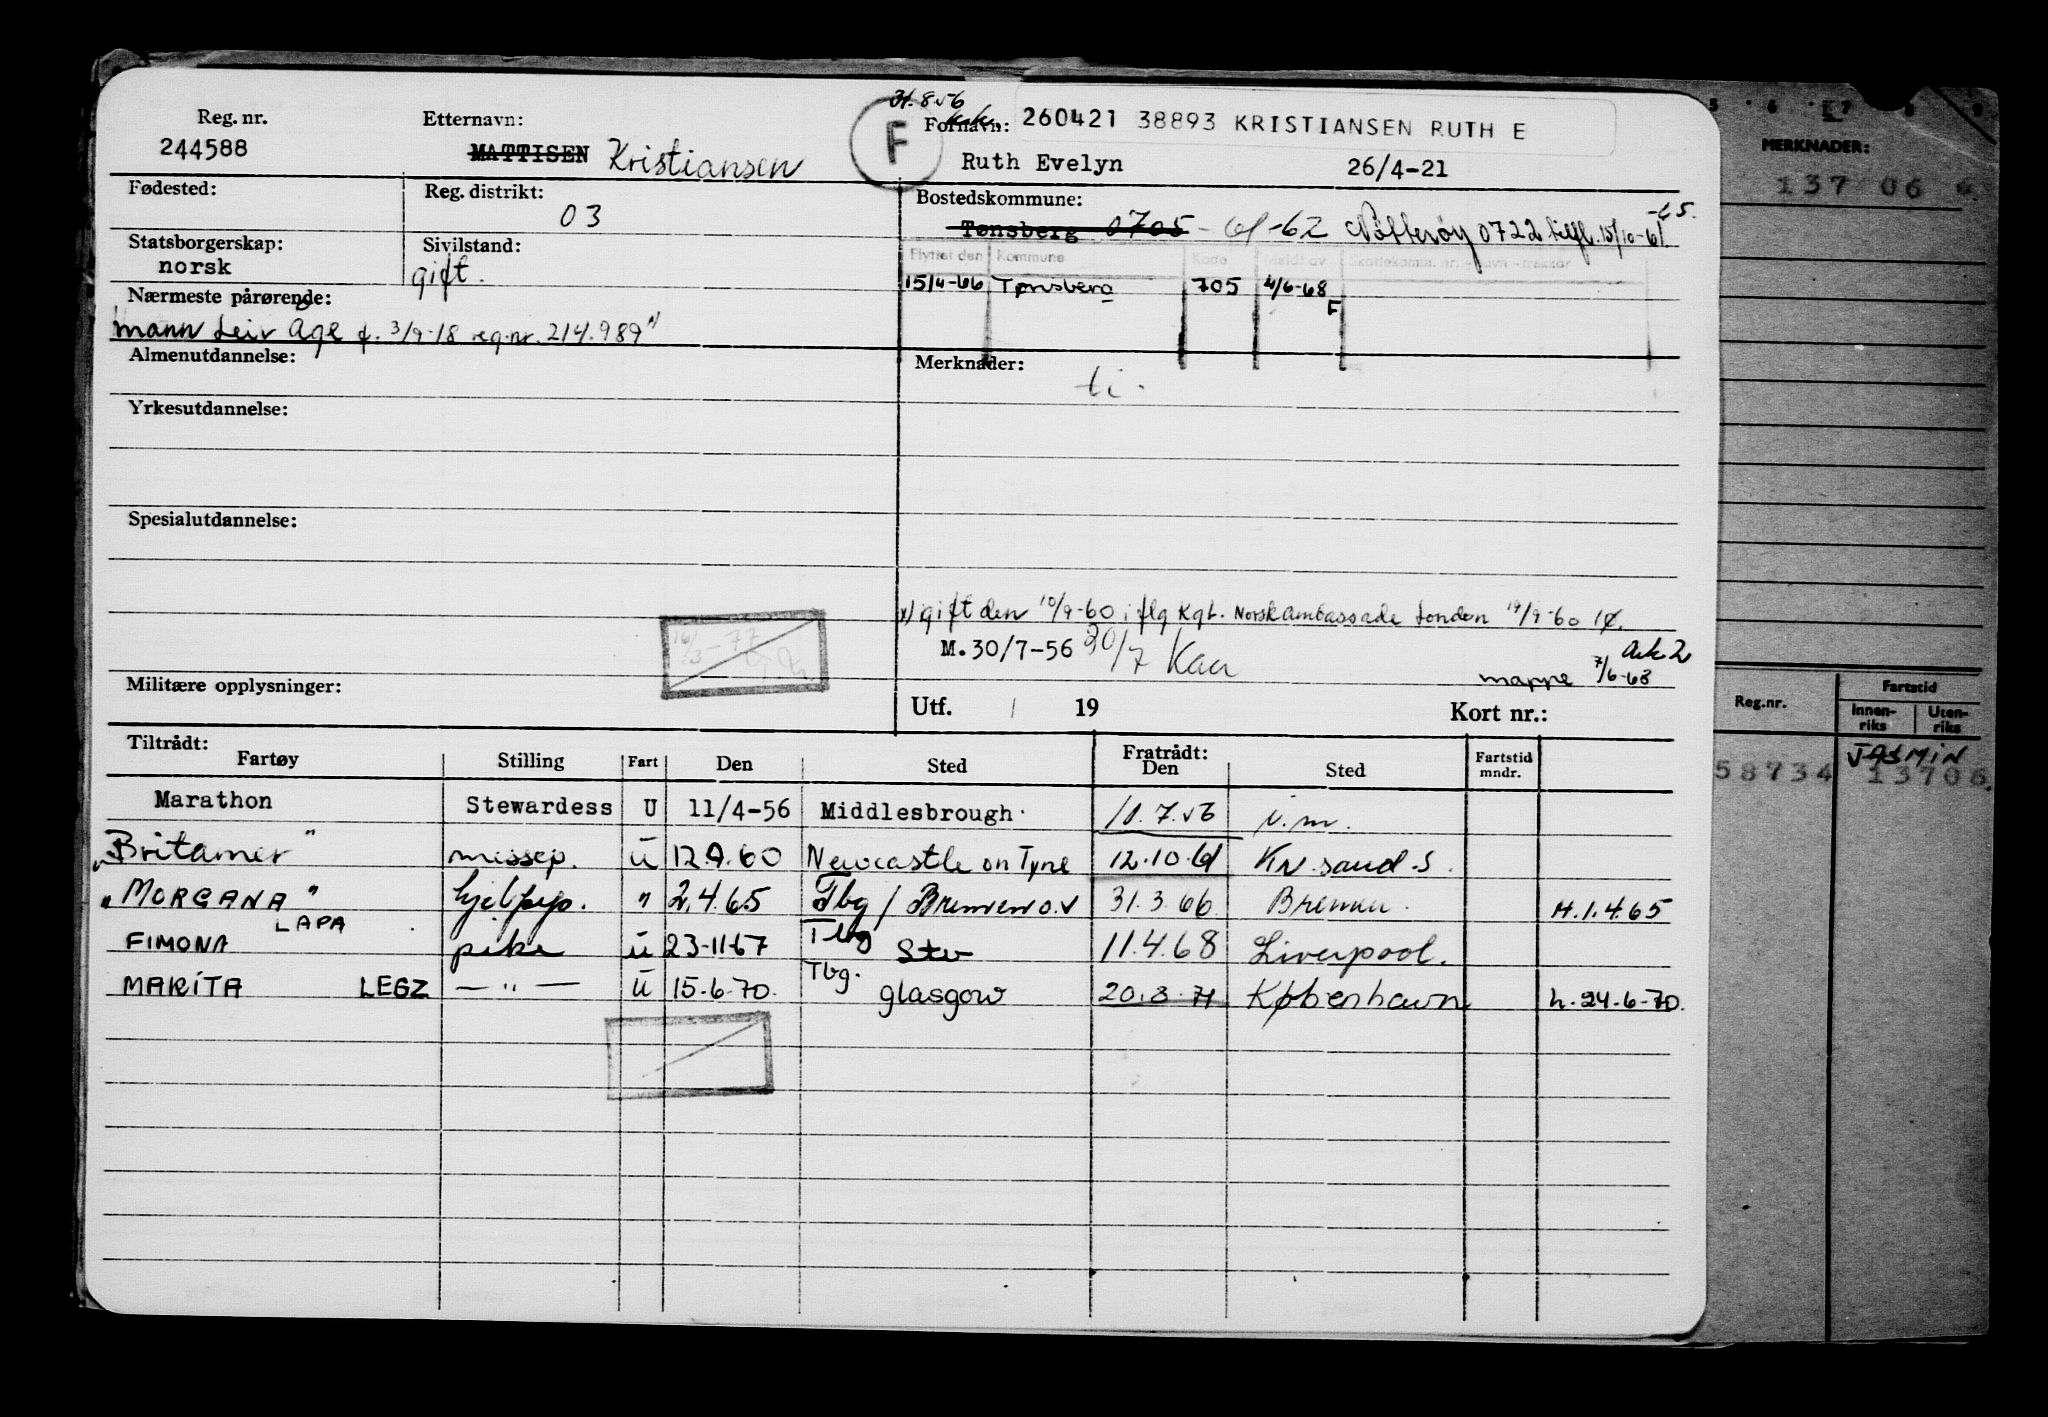 31.8.56
Reg. nr. Etternavn: Fornavn: 260421 38893 KRISTIANSEN RUTH E
244588 MATTISEN Kristiansen F Ruth Evelyn 26/4-21
Fødested: Reg. distrikt: 03 Bostedskommune:
Tønsberg 0705 -61-62 Nøtterøy 0722 tilfl. 15/10-61 -65.
Statsborgerskap: norsk Sivilstand: gift.
Flyttet den Kommune Kode Meldt av Skattekomm. nr. - navn - trekkar
15/4-66 Tønsberg 705 4/6-68 F
Nærmeste pårørende:
mann Leiv Åge f. 3/9-18 reg.nr. 214.989 x)
Almenutdannelse: Merknader:
ti.
Yrkesutdannelse:
Spesialutdannelse:
x) gift den 10/9-60 iflg Kgl. Norsk ambassade London 19/9-60
16/3-77
M.30/7-56 30/7
Ark. 2
mappe 7/6-68
Militære opplysninger: Utf. / 19 Kort nr.:
Tiltrådt: Fratrådt:
Fartøy Stilling Fart Den Sted Den Sted Fartstid mndr.
Marathon Stewardess U 11/4-56 Middlesbrough 11.7.56 i.m.
"Britamer" messep. U 12.9.60 Newcastle on Tyne 12.10.61 Kr.sand.S.
"MORGANA" hjelpep. " 2.4.65 Tbg / Bremen o.v 31.3.66 Bremen. H.1.4.65
FIMONA LAPA pike U 23-11-67 Tbg Stv 11.4.68 Liverpool.
MARITA LEGZ — " — U 15-6-70. Tbg. glasgow 20.3.71 København h.24-6-70.
5 6 7 8 9
MERKNADER:
137 06
Reg.nr. Fartstid
Innen-riks Uten-riks
JASMIN
58734 13706